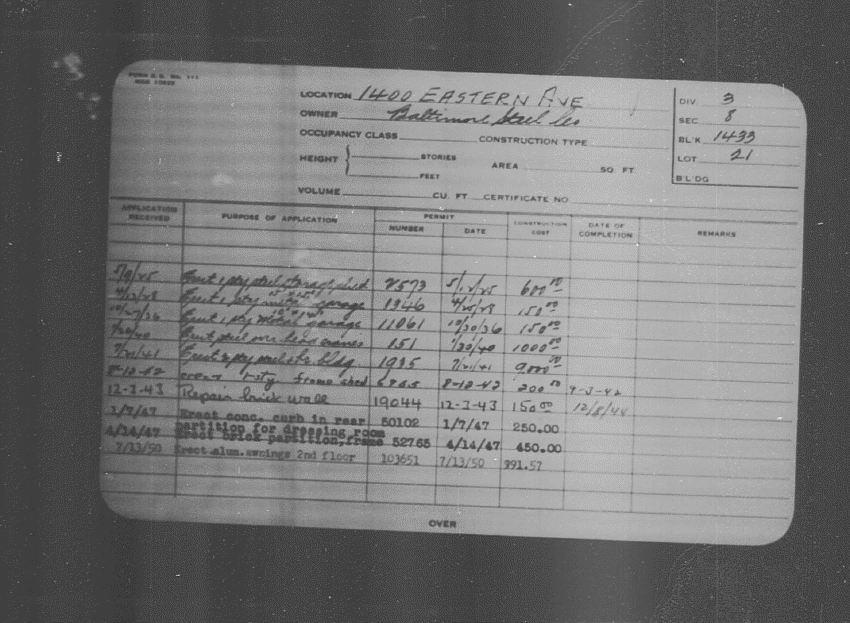 LOCATION 1400 EASTERN AVE
OWNER Baltimore Steel Co.
OCCUPANCY CLASS CONSTRUCTION TYPE
HEIGHT { STORIES AREA SQ. FT
FEET
VOLUME CU. FT CERTIFICATE NO
DIV. 3
SEC 8
BL'K 1433
LOT 21
B'L'DG
APPLICATION RECEIVED PURPOSE OF APPLICATION PERMIT NUMBER DATE CONSTRUCTION COST DATE OF COMPLETION REMARKS
5/9/25 Erect 1 sty steel storage shed 2573 5/12/25 600.00
Erect 1 sty metal garage 1346 150.00
Erect 1 sty metal garage 11061 10/30/36 150.00
Erect steel over head cranes 151 1/20/40 1000.00
7/21/41 Erect 2 sty steel bldg. 1935 7/21/41 9000.00
8-12-42 frame shed 8-12-42 200.00 9-3-42
12-3-43 Repair brick wall 19044 12-3-43 150.00 12/8/44
1/7/47 Erect conc. curb in rear 50102 1/7/47 250.00
partition for dressing room
4/14/47 Erect brick partition, frame 52765 4/14/47 450.00
7/13/50 Erect alum. awnings 2nd floor 103651 7/13/50 391.57
OVER